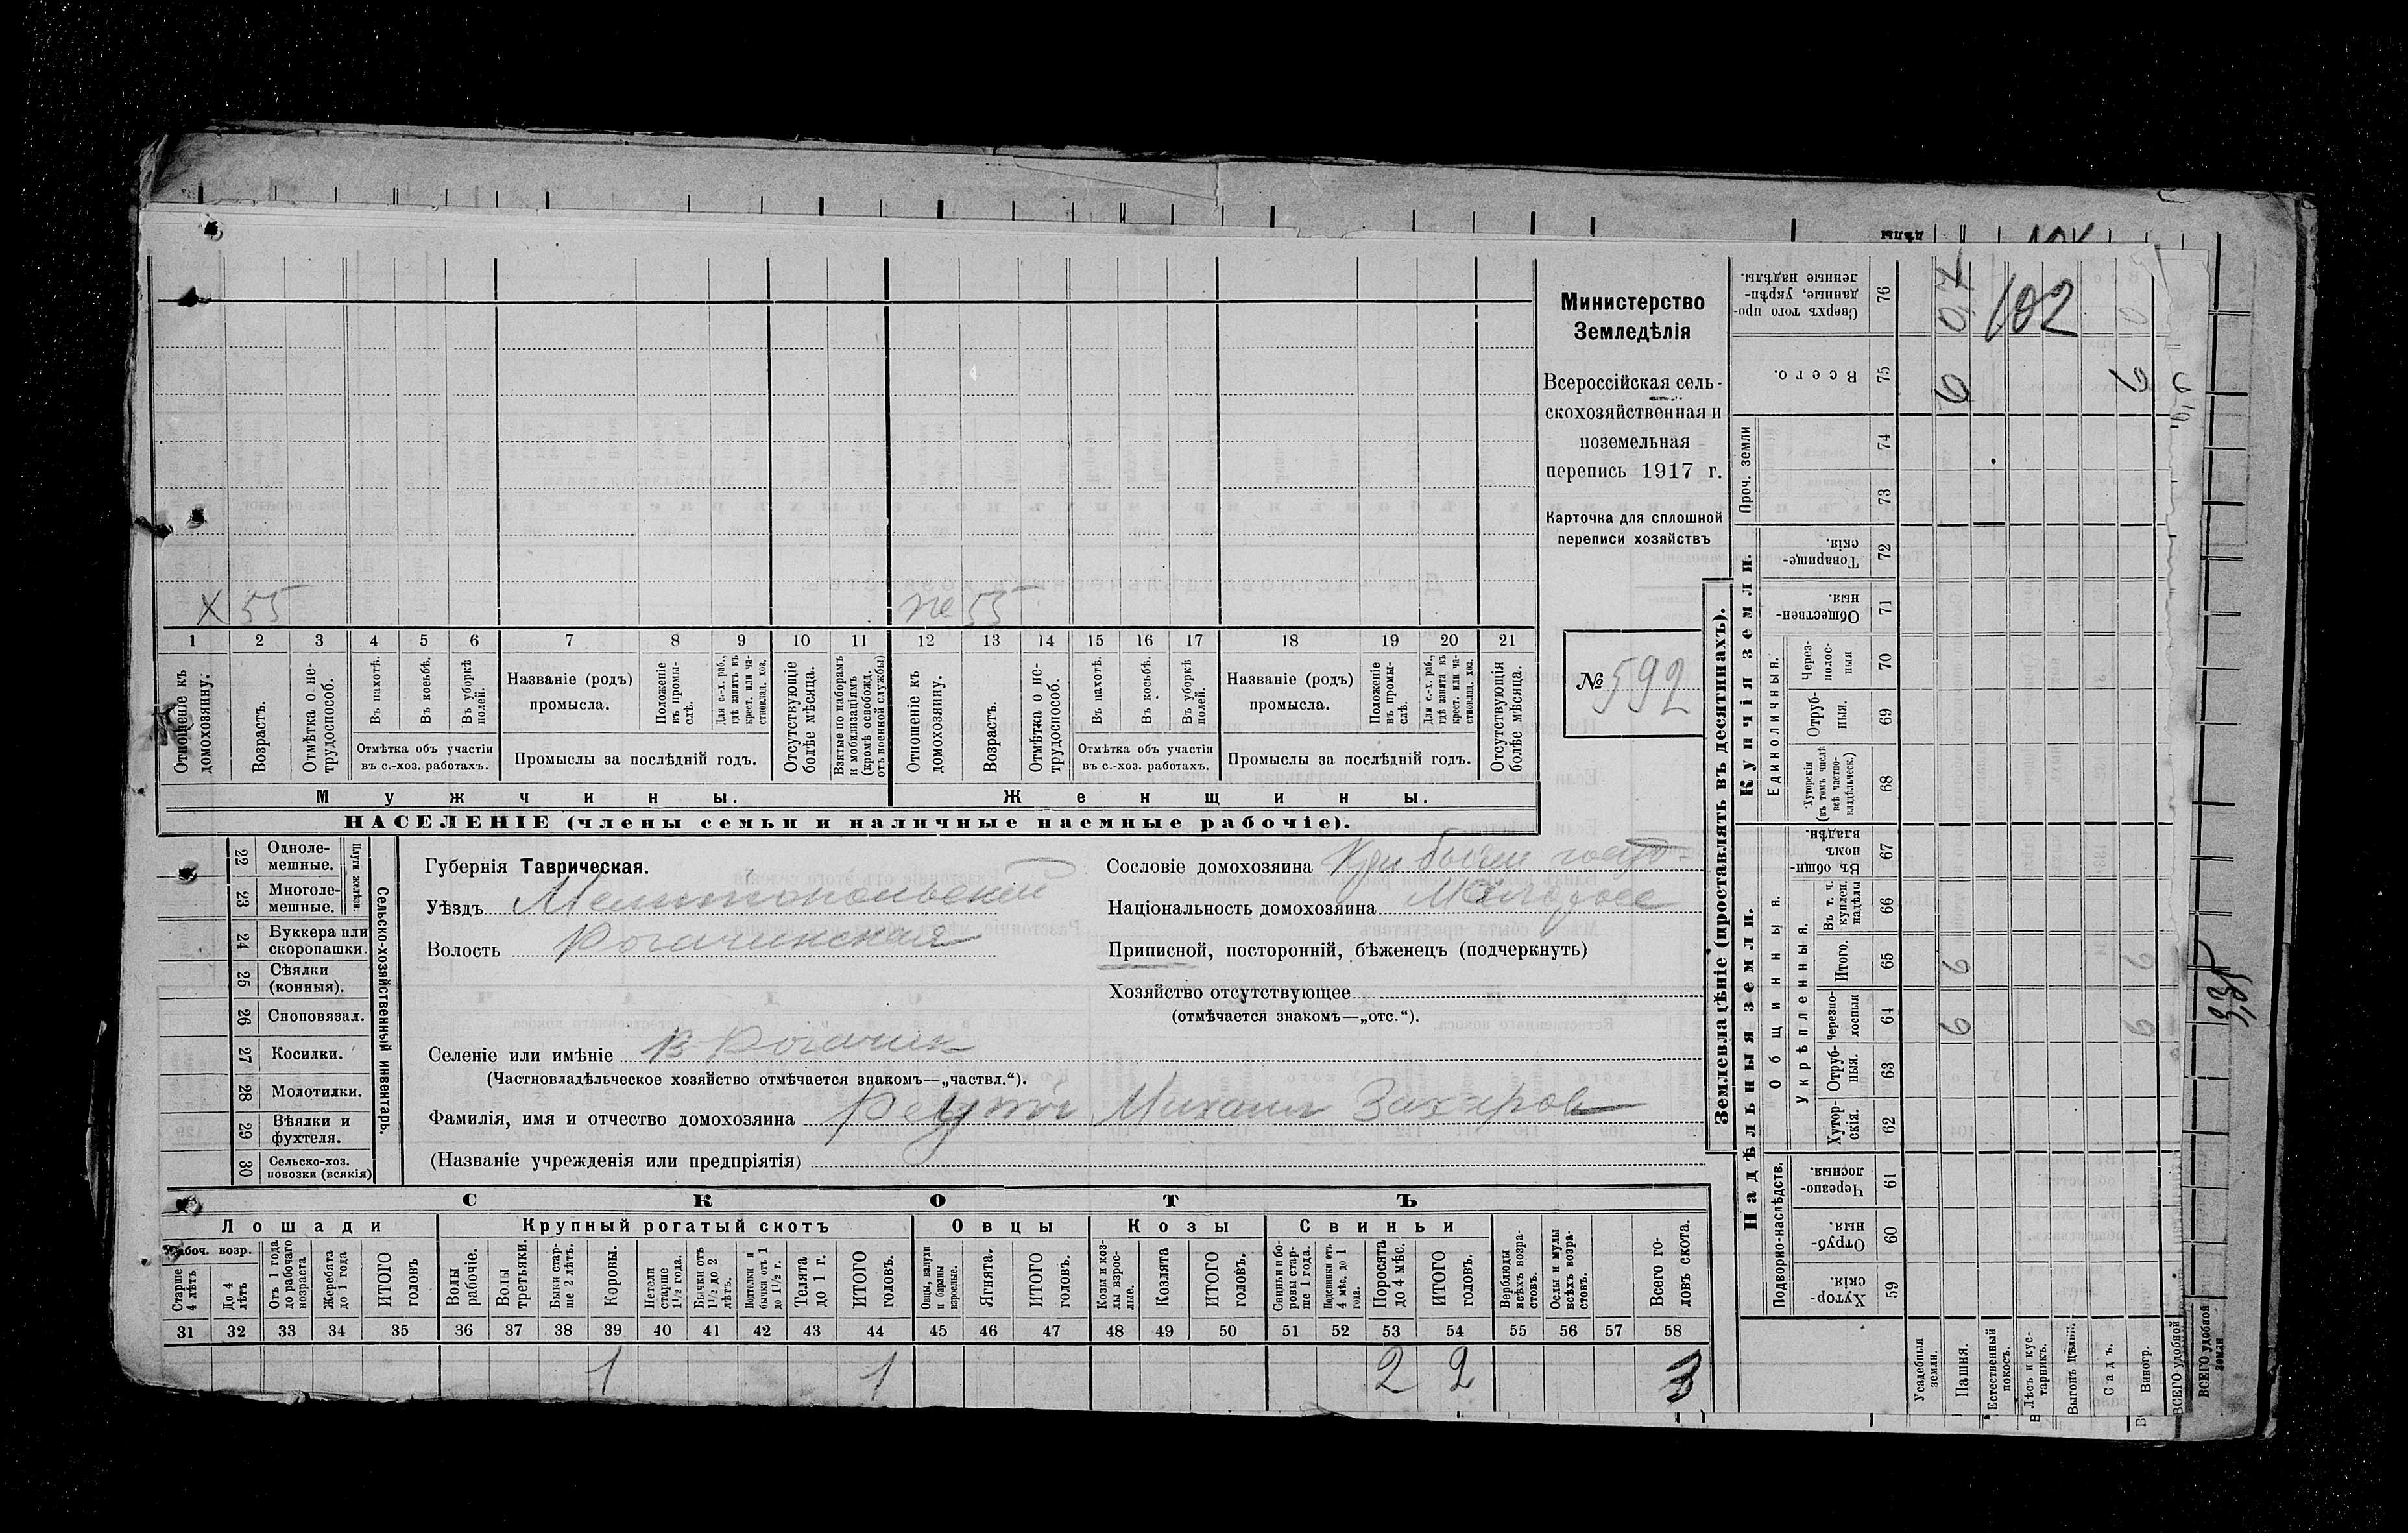 Министерство
Земледѣлія
Всероссійская сель-
скохозяйственная и
поземельная
перепись 1917 г.
Карточка для сплошной
переписи хозяйствъ
№ 592
X 55 55
1 2 3 4 5 6 7 8 9 10 11 12 13 14 15 16 17 18 19 20 21
Отношеніе къ домохозяину.
Возрастъ.
Отмѣтка о не-трудоспособ.
Въ пахотѣ.
Въ косьбѣ.
Въ уборкѣ полей.
Отмѣтка объ участіи въ с.-хоз. работахъ.
Названіе (родъ) промысла.
Положеніе въ промы-слѣ.
Для с.-х. раб., гдѣ занятъ въ крест. или ча-стновлад. хоз.
Промыслы за послѣдній годъ.
Отсутствующіе болѣе мѣсяца.
Взятые по наборамъ и мобилизаціямъ (кромѣ освобожд. отъ военной службы)
Отношеніе къ домохозяину.
Возрастъ.
Отмѣтка о не-трудоспособ.
Въ пахотѣ.
Въ косьбѣ.
Въ уборкѣ полей.
Отмѣтка объ участіи въ с.-хоз. работахъ.
Названіе (родъ) промысла.
Положеніе въ промы-слѣ.
Для с.-х. раб., гдѣ занята въ крест. или ча-стновлад. хоз.
Промыслы за послѣдній годъ.
Отсутствующія болѣе мѣсяца.
Мужчины. Женщины.
НАСЕЛЕНІЕ (члены семьи и наличные наемные рабочіе).
22 Одноле-мешные.
23 Многоле-мешные.
Плуги желѣзн.
24 Буккера или скоропашки.
25 Сѣялки (конныя).
26 Сноповязал.
27 Косилки.
28 Молотилки.
29 Вѣялки и фухтеля.
30 Сельско-хоз. повозки (всякія)
Сельско-хозяйственный инвентарь.
Губернія Таврическая.
Уѣздъ Мелитопольскій
Волость Рогачинская
Сословіе домохозяина
Національность домохозяина Малоросс
Приписной, посторонній, бѣженецъ (подчеркнуть)
Хозяйство отсутствующее
(отмѣчается знакомъ—„отс.“).
Селеніе или имѣніе В Рогачик
(Частновладѣльческое хозяйство отмѣчается знакомъ—„частвл.“).
Фамилія, имя и отчество домохозяина Михаил Захаров
(Названіе учрежденія или предпріятія)
СКОТЪ
Лошади Крупный рогатый скотъ Овцы Козы Свиньи
Рабоч. возр.
Старше 4 лѣтъ
До 4 лѣтъ
Отъ 1 года до рабочаго возраста
Жеребята до 1 года
ИТОГО головъ
Волы рабочіе.
Волы третьяки.
Быки стар-ше 2 лѣтъ.
Коровы.
Нетели старше 1 1/2 года.
Бычки отъ 1 1/2 до 2 лѣтъ.
Подтелки и бычки отъ 1 до 1 1/2 г.
Телята до 1 г.
ИТОГО головъ.
Овцы, валухи и бараны взрослые.
Ягнята.
ИТОГО головъ.
Козы и коз-лы взрос-лые.
Козлята
ИТОГО головъ.
Свиньи и бо-ровы стар-ше 1 года.
Подсвинки отъ 4 мѣс. до 1 года.
Поросята до 4 мѣс.
ИТОГО головъ.
Верблюды всѣхъ возра-стовъ.
Ослы и мулы всѣхъ возра-стовъ.
Всего го-ловъ скота.
31 32 33 34 35 36 37 38 39 40 41 42 43 44 45 46 47 48 49 50 51 52 53 54 55 56 57 58
1 1 2 2 3
Землевладѣніе (проставлять въ десятинахъ).
Купчія земли.
Надѣльныя земли.
Сверхъ того про-данные, укрѣп-ленные надѣлы. 76
Всего. 75
Проч. земли 74 73
Товарище-скія. 72
Обществен-ныя. 71
Единоличныя.
Через-полос-ныя 70
Отруб-ныя. 69
Хуторскія (въ томъ числѣ всѣ частно-владѣльческ.) 68
Общинныя.
Въ общин-номъ владѣн. 67
Укрѣпленныя.
Въ т. ч. куплен. надѣлы 66
Итого. 65
Черезпо-лосныя 64
Отруб-ныя. 63
Хутор-скія. 62
Подворно-наслѣдств.
Черезпо-лосныя. 61
Отруб-ныя. 60
Хутор-скія. 59
Усадебныя земли.
Пашня.
Естественный покосъ.
Лѣсъ и кус-тарникъ.
Выгонъ
Садъ.
Виногр.
ВСЕГО удобной
ВСЕГО удобной земли
102
9
9
9